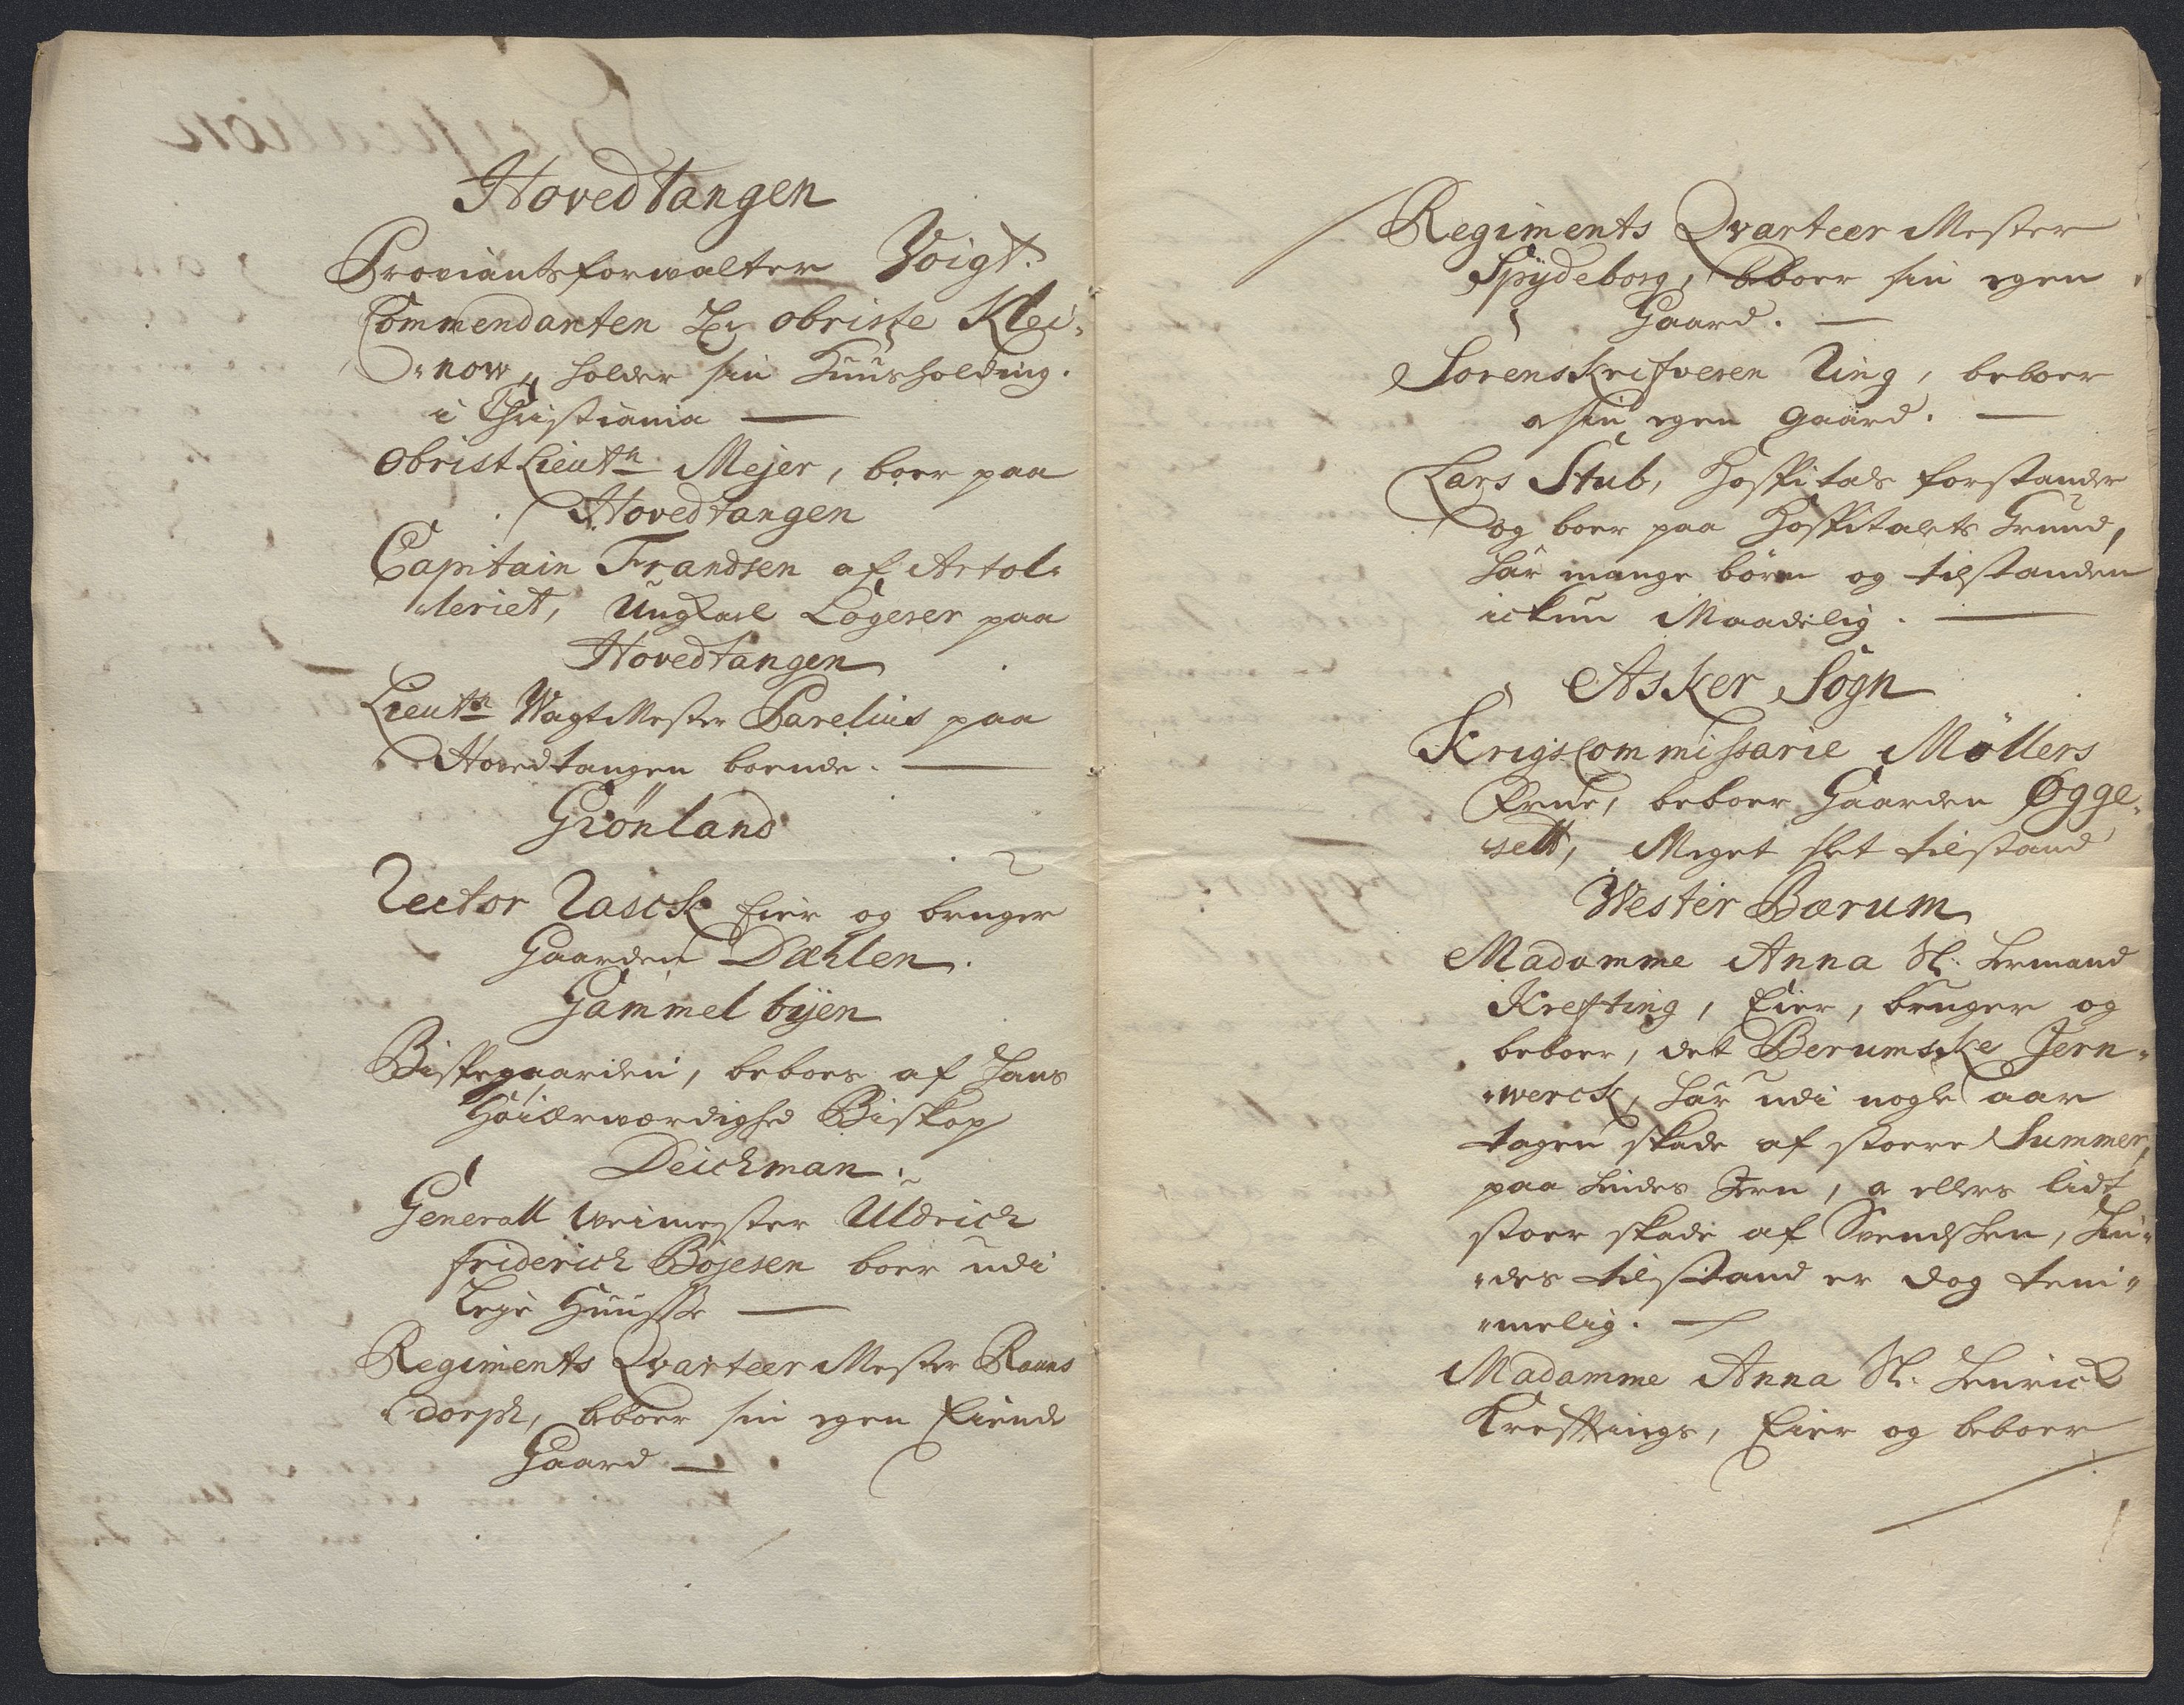 Hovedtangen
Proviantsforwalter Voigt.
Commendanten Hr obriste Klei-
-now, holder sin Huusholding.
i Christiania —
Obrist Lieutn Mejer, boer paa
Hovedtangen
Capitain Frandsen af Artol-
-leriet, Ungkarl Logerer paa
Hovedtangen
Lieutn WagtMester Parelius paa
Hovedtangen boende. —
Grönland
Rector Rasck Eier og bruger
Gaarden Dæhlen.
Gammel byen
Bispegaarden, beboes af Hans
Höiærwærdighed Biskop
Deichman.
Generall Veimester Uldrich
friderich Bojesen boer udi
Leye Huusse —
Regiments Qvarteer Mester Rauns
-dorph, beboer sin egen Eiende
Gaard —
Regiments Qvarteer Mester
Spydeborg, beboer sin egen
Gaard. —
Sorenskrifveren Ring, beboer
sin egen Gaard. —
Lars Stub, Hospitals forstander
og boer paa Hospitalets Grund,
har mange börn og tilstanden
ickun Maadelig. —
Asker Sogn
Krigs Commissarie Möllers
Frue, beboer Gaarden Øgge-
-sett, Meget slet tilstand
Wester Bærum
Madamme Anna Sl: Hermand
Krefting, Eier, bruger og
beboer, det Berumske Jern-
-werck, har udi nogle aar
tagen skade af stoere Summer,
paa Hendes Jern, a ellers lidt
stoer skade af Svendsken, Hen-
-des tilstand er dog tem-
-melig. —
Madamme Anna Sl: Henrick
Krefftings, Eier og beboer